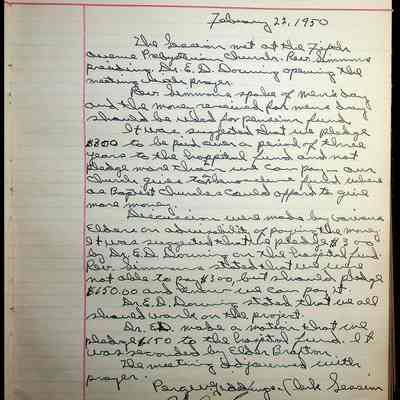 February 22, 1950
The Session met at the Fifth
Avenue Presbyterian Church. Rev. Simmons
presiding. Dr. E. D. Downing opening the
meeting with prayer.
Rev. Simmons spoke of Men's day
and the money received for men's day
should be used for pension fund.
It was suggested that we pledge
$300 to be paid over a period of three
years to the hospital fund and not
pledge more than we can pay. Our
Church gives to the
as Baptist Churches could afford to give
more money.
Discussion were made by various
Elders on advisability of paying the money.
It was suggested that we pledge $300
by Dr. E. D. Downing on the hospital fund.
Rev. Simmons stated that we were
not able to pay $300, but should pledge
$150.00 and know we can pay it.
Dr. E. D. Downing stated that we all
should work on the project.
Dr. E.D. made a motion that we
pledge $150 to the hospital fund. It
was seconded by Elder
The meeting adjourned with
prayer.
Clerk Session